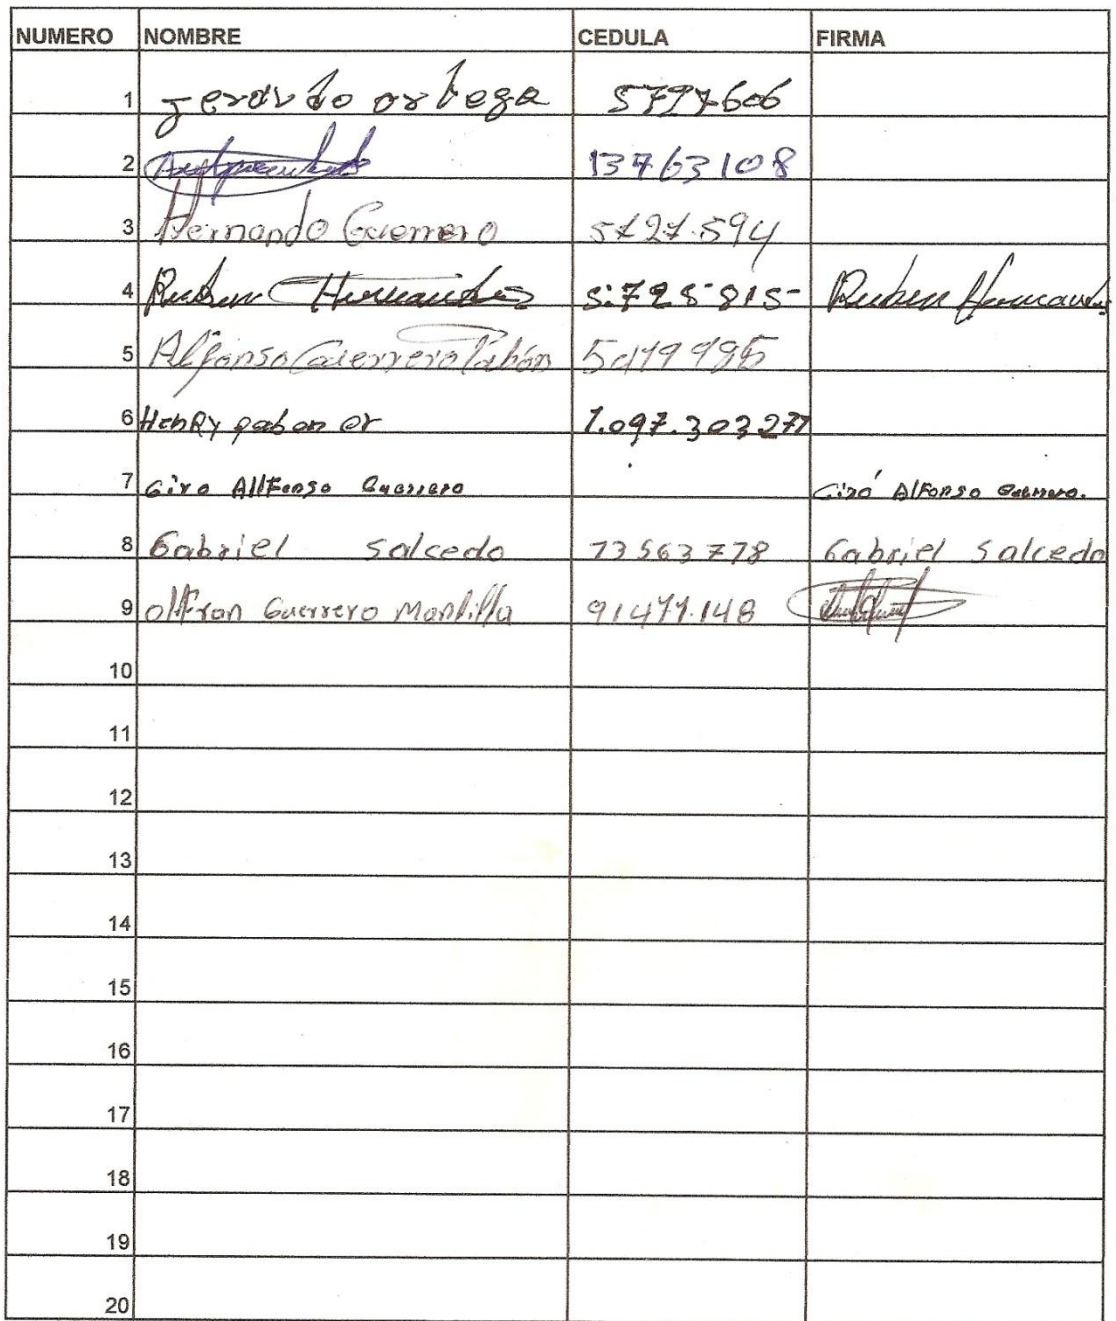 NUMERO NOMBRE CEDULA FIRMA
1 Jerardo ortega 5797606
2 13763108
3 Hernando Guerrero 5727.594
4 Ruben Hernandez 5:725-815- Ruben Hernandez
5 Alfonso Guerrero Pabón
6 HenRy pabon or 1.097.303277
7 Ciro AllFonso Guerrero Ciró AlFonso Guerrero.
8 Gabriel Salcedo 13563778 Gabriel Salcedo
9 Guerrero Mantilla 91471.148
10
11
12
13
14
15
16
17
18
19
20